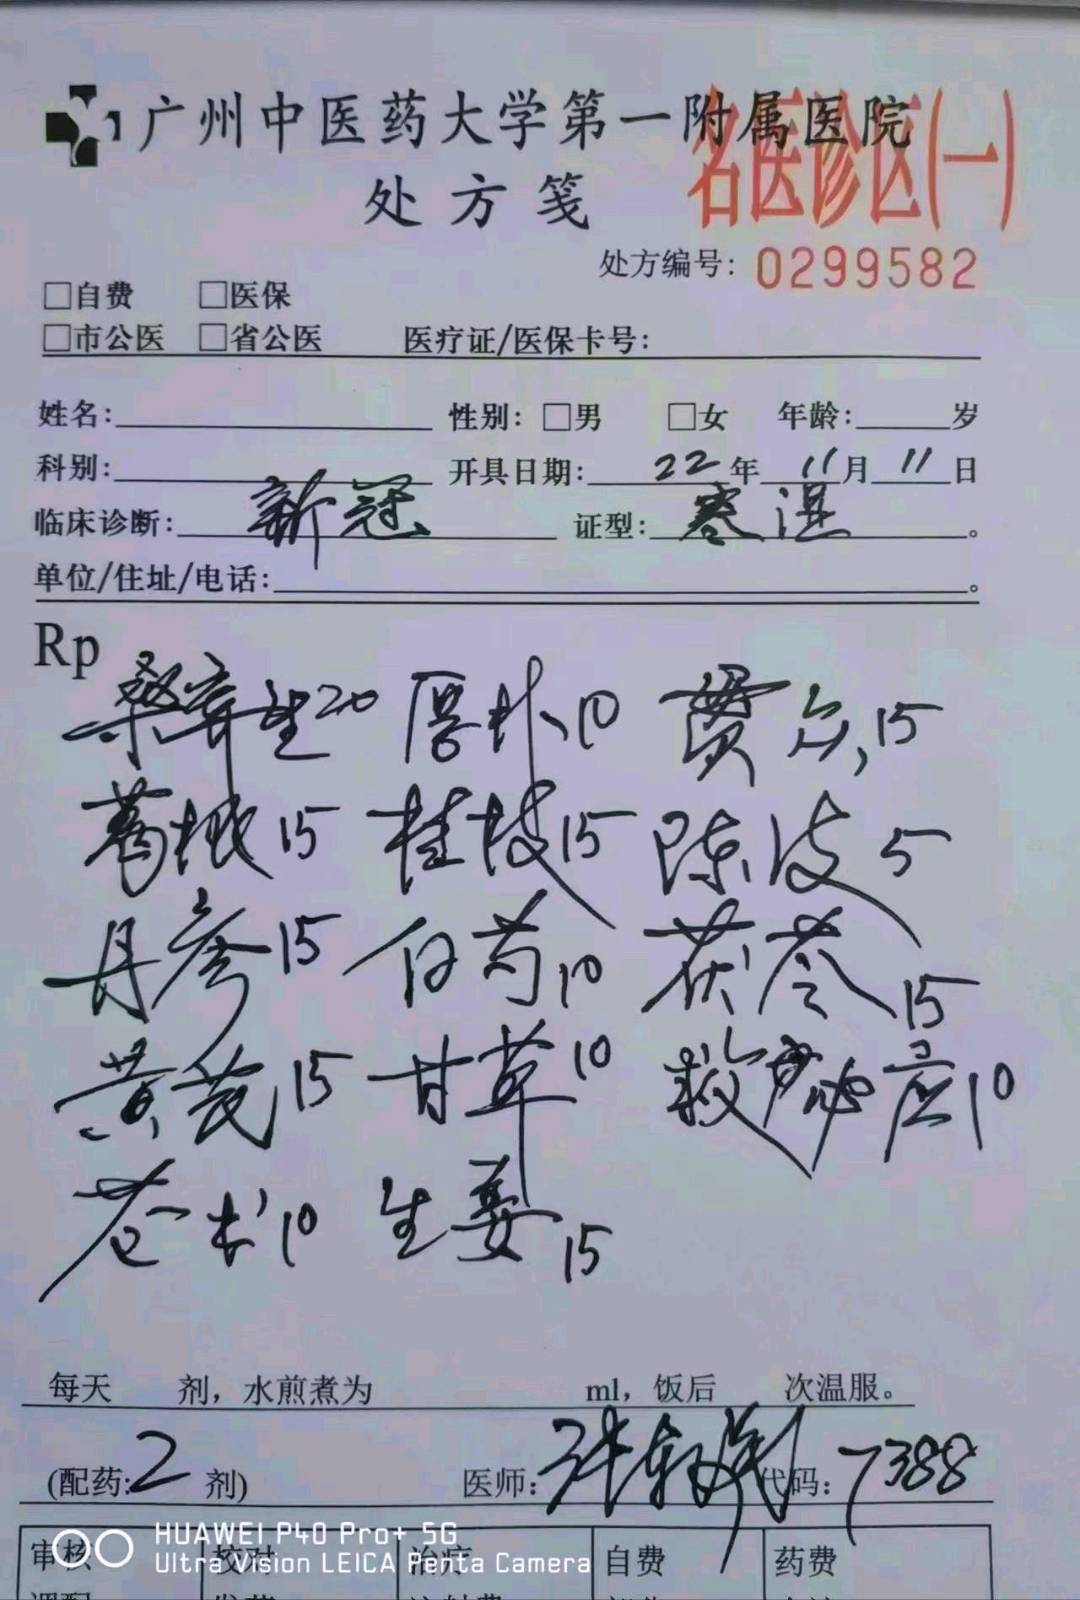 广州中医药大学第一附属医院
名医诊区(一)
处方笺
处方编号: 0299582
□自费 □医保
□市公医 □省公医 医疗证/医保卡号:
姓名: 性别: □男 □女 年龄: 岁
科别: 开具日期: 22年11月11日
临床诊断: 新冠 证型: 寒湿。
单位/住址/电话: 。
Rp
桑寄生20 厚朴10 15
葛根15 桂枝15 陈皮5
丹参15 白芍10 茯苓15
黄芪15 甘草10 救必应10
苍术10 生姜15
每天 剂, 水煎煮为 ml, 饭后 次温服。
(配药:2剂) 医师: 代码: 7388
审核 校对 治疗 自费 药费
HUAWEI P40 Pro+ 5G
Ultra Vision LEICA Penta Camera